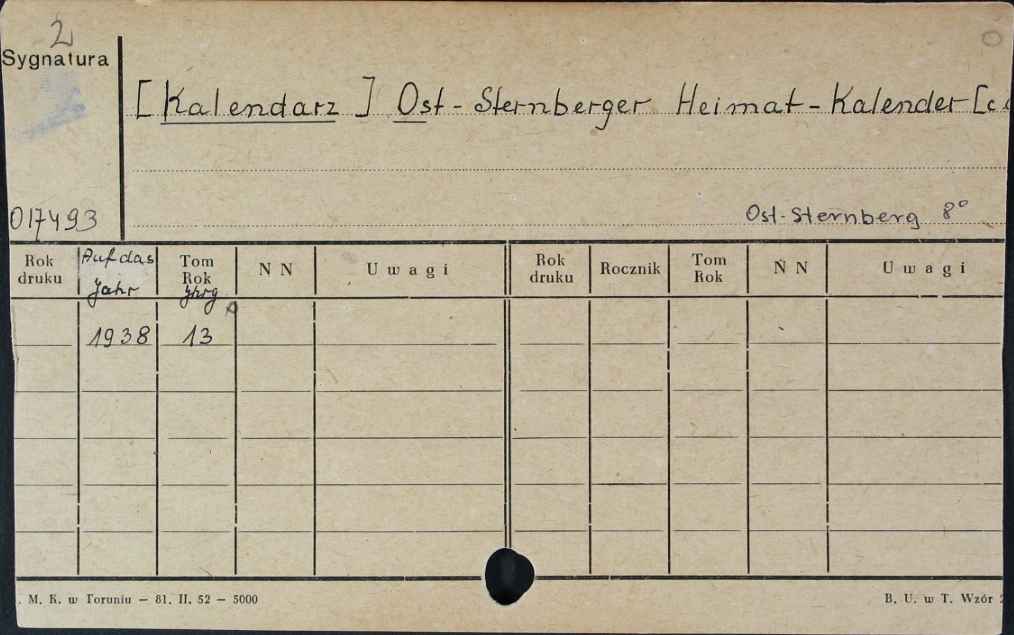 2
Sygnatura
[Kalendarz] Ost-Sternberger Heimat-Kalender [c.
017493
Ost-Sternberg 8°
Rok druku Auf das Jahr Tom Rok Jhrg NN Uwagi Rok druku Rocznik Tom Rok NN Uwagi
1938 13
. M. K. w Toruniu — 81. II. 52 — 5000 B. U. w T. Wzór